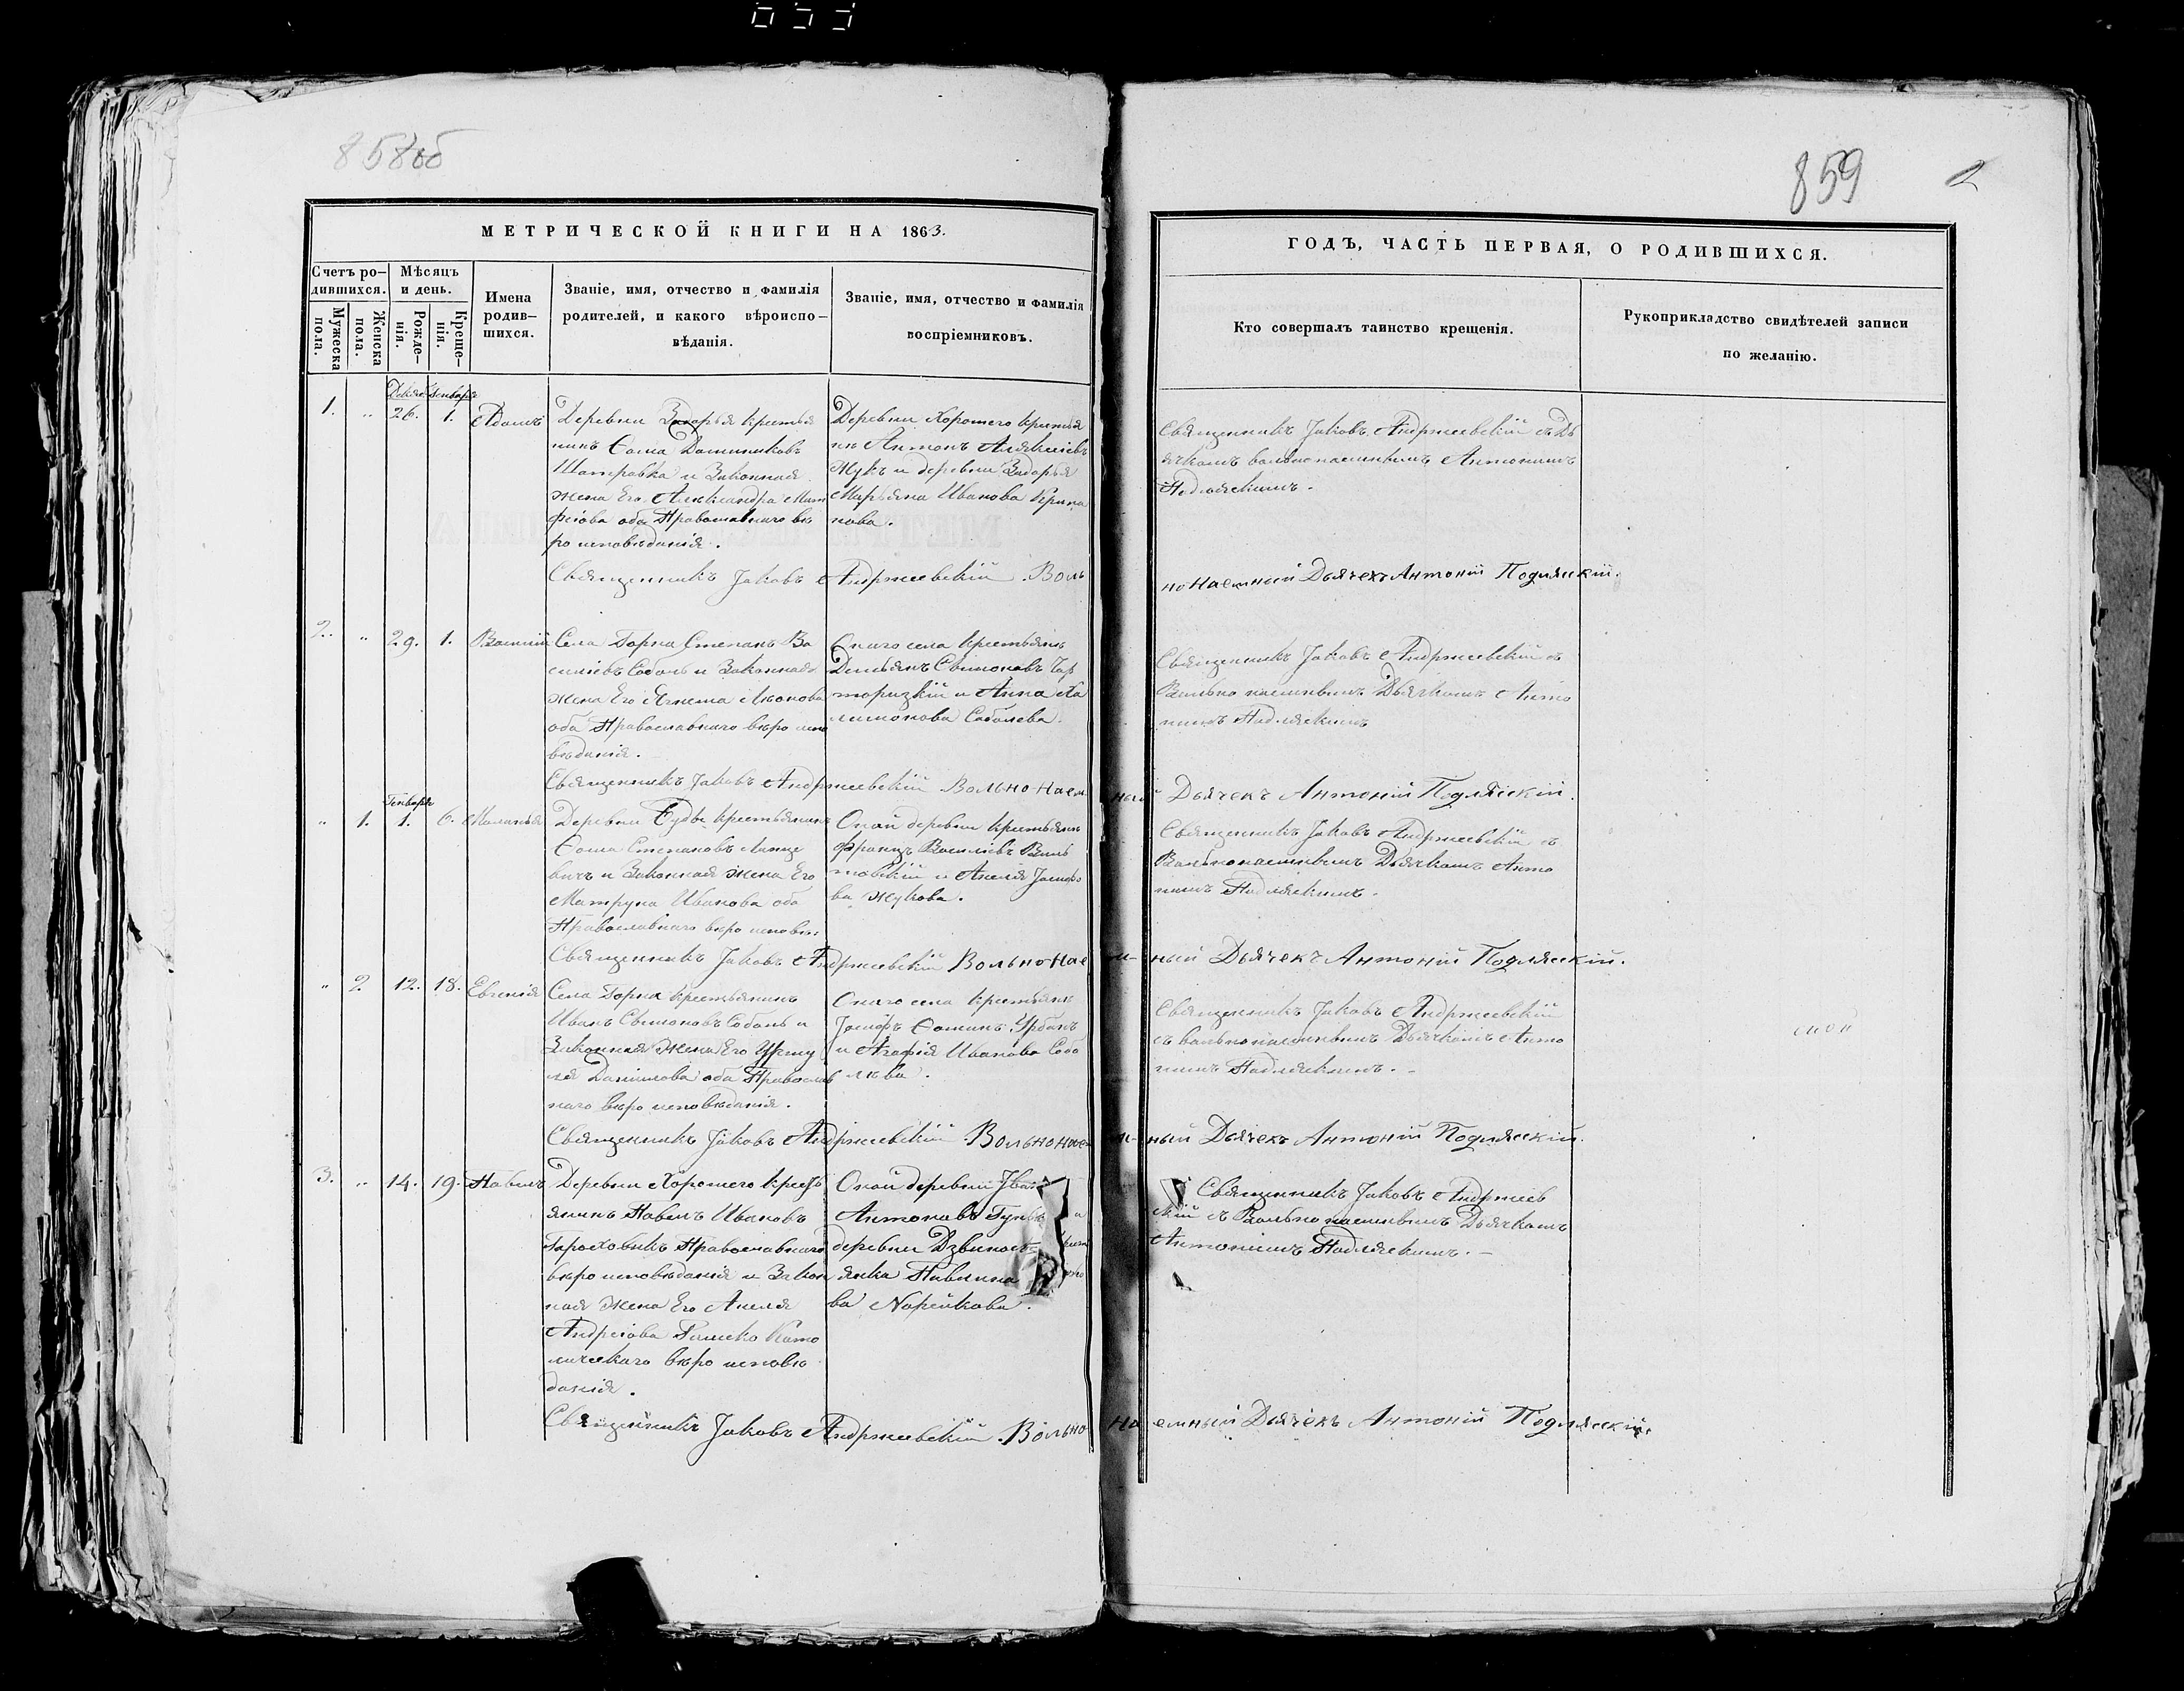 858об
859
2
МЕТРИЧЕСКОЙ КНИГИ НА 1863.
ГОДЪ, ЧАСТЬ ПЕРВАЯ, О РОДИВШИХСЯ.
Счетъ ро-
дившихся.
Мужеска
пола.
Женска
пола.
Мѣсяцъ
и день.
Рожде-
нія.
Креще-
нія.
Имена
родив-
шихся.
Званіе, имя, отчество и фамилія
родителей, и какого вѣроиспо-
вѣданія.
Званіе, имя, отчество и фамилія
воспріемниковъ.
Кто совершалъ таинство крещенія.
Рукоприкладство свидѣтелей записи
по желанію.
1. „ 26. 1. Адамъ
Деревни Задорья крестья
нинъ Ѳома Доминиковъ
Шатравка и Законная
жена Его Александра Мат
феіова оба Православнаго вѣ
ро исповѣданія.
Деревни Хорошего крестья
нъ Антонъ Алексіевъ
Жукъ и деревни Задорья
Марьяна Иванова
нова.
Священникъ Јаковъ Андржеевскій съ Дь
ячкомъ вольнонаемнымъ Антоніимъ
Подляскимъ.
Священникъ Јаковъ Андржеевскій. Воль
нонаемный Дьячекъ Антоній Подляскій.
2. „ 29. 1. Василій
Села Горна Степанъ Ва
силіевъ Соболь и Законная
жена Его Агнета
оба Православнаго вѣро испо
вѣданія.
Онаго села крестьянъ
Демьянъ Свимоновъ Чар
торизкій и Анна Ха
Соболева.
Священникъ Јаковъ Андржеевскій съ
Вольнонаемнымъ Дьячкомъ Анто
ніимъ Подляскимъ
Священникъ Јаковъ Андржеевскій Вольно-Наем
ный Дьячекъ Антоній Подляскій.
Генваря
„ 1. 1. 6. Маланья
Деревни крестьянинъ
Ѳома Степановъ
вичъ и Законная жена Его
Матруна Иванова оба
Православнаго вѣро исповѣ:
Оной деревни крестьянъ
Францъ Василіевъ
и Анеля Јосифо
ва Жукова.
Священникъ Јаковъ Андржеевскій съ
Вольнонаемнымъ Дьячкомъ Анто
ніимъ Подляскимъ.
Священникъ Јаковъ Андржеевскій Вольно-Нае
м-ный Дьячекъ Антоній Подляскій.
„ 2 12. 18. Евгенія
Села Горна крестьянинъ
Иванъ Свимоновъ Соболь и
Законная жена Его Уршу
ля Даніилова оба Православ
наго вѣро исповѣданія.
Онаго села крестьянъ
Јосифъ Ѳоминъ Урбанъ
и Агафія Иванова Собо
лева.
Священникъ Јаковъ Андржеевскій
съ вольнонаемнымъ Дьячкомъ Анто
ніимъ Подляскимъ.
Священникъ Јаковъ Андржеевскій. Вольнонае
м-ный Дьячекъ Антоній Подляскій.
3. „ 14. 19. Павелъ
Деревни Хорошего кресть
янинъ Павелъ Ивановъ
Гароховикъ Православнаго
вѣро исповѣданія и Закон
ная жена Его Анеля
Андреіова Римско Като
лическаго вѣро исповѣ
данія.
Оной деревни
Антоновъ
деревни
янка Павлина
ва Норейкова.
Священникъ Јаковъ Андржеев
скій съ Вольнонаемнымъ Дьячкомъ
Антоніимъ Подляскимъ.
Священникъ Јаковъ Андржеевскій. Вольно
наемный Дьячекъ Антоній Подляскій.